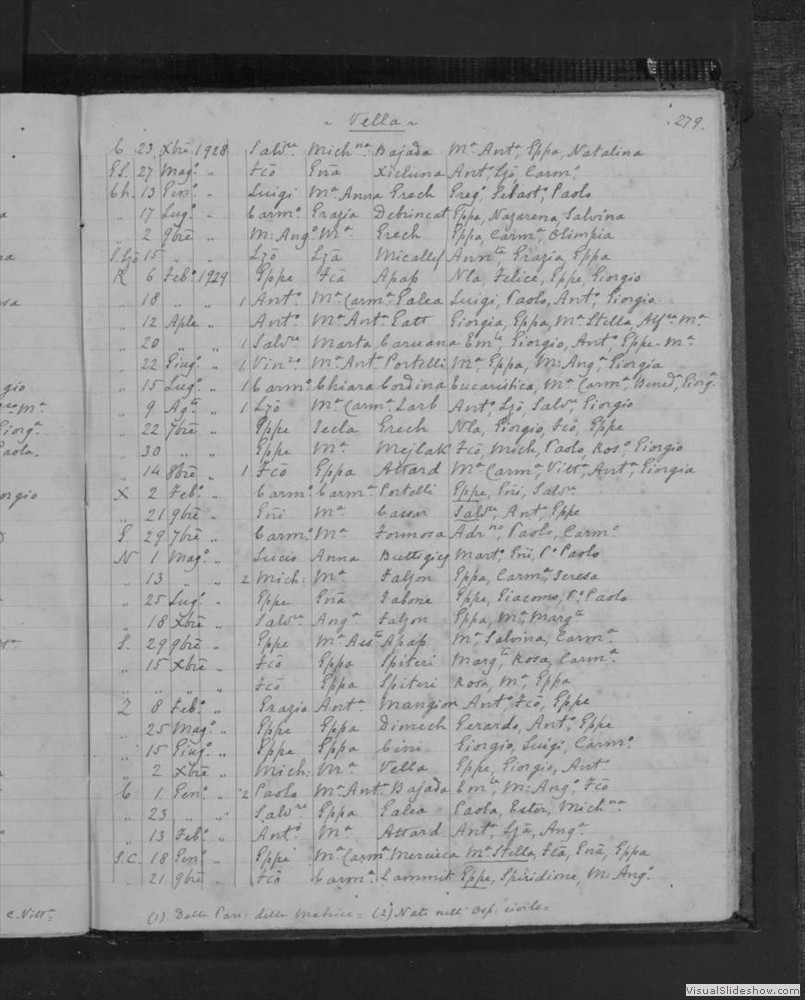 ~ Vella ~ 279.
C 23 Xbrē 1928 Salvre Michna Bajada Ma Anta, Eppa, Natalina
E.S. 27 Mago „ Fcō Enā Xicluna Anto, Ljō, Carmo
Ch. 13 Geno „ Luigi Ma Anna Grech Grego, Sebasto, Paolo
„ 17 Lugo „ Carmo Grazia Debrincat Eppa, Nazarena, Salvina
„ 2 9brē „ M. Ango Ma Grech Eppa, Carma, Olimpia
S. Ljō 15 „ „ Ljō Ljā Micallef Annta Grazia, Eppa
K 6 Febo 1929 Eppe Fcā Apap Nla, Felice, Eppe, Giorgio
„ 18 „ „ 1 Anto Ma Carma Galea Luigi, Paolo, Anto, Giorgio
„ 12 Aple „ Anto Ma Anta Gatt Giorgia, Eppa, Ma Stella, Ma
„ 20 „ „ 1 Salvre Marta Caruana Emle, Giorgio, Anto, Eppe. Ma
„ 22 Giugo „ 1 Vinzo Ma Anta Portelli Ma Eppa, M. Anga, Giorgia
„ 15 Lugo „ 1 Carmo Chiara Cordina Eucaristica, Ma Carma, Beneda, Giorga
„ 9 Agto „ 1 Ljō Ma Carma Zarb Anto, Ljō, Salvre, Giorgio
„ 22 7brē „ Eppe Tecla Grech Nla, Giorgio, Fcō, Eppe
„ 30 „ „ Eppe Ma Mejlak Fcō, Mich, Paolo, Roso, Giorgio
„ 14 8brē „ 1 Fcō Eppa Attard Ma Carma Vitta, Anta, Giorgia
X 2 Febo „ Carmo Carma Portelli Eppe, Gñi, Salvre
„ 21 9brē „ Gñi Ma Cassar Salvre, Anto, Eppe
G. 29 7brē „ Carmo Ma Formosa Adrno, Paolo, Carmo
N 1 Mago „ Lucio Anna Buttigieg Marto, Gñi, Po Paolo
„ 13 „ „ 2 Mich: Ma Falzon Eppa, Carma, Teresa
„ 25 Lugo „ Eppe Enā Tabone Eppe, Giacomo, Po Paolo
„ 18 Xbrē „ Salvre Anga Falzon Eppa, Ma, Margta
S. 29 9brē „ Eppe Ma Assa Apap Ma, Salvina, Carma
„ 15 Xbrē „ Fcō Eppa Spiteri Margta, Rosa, Carma
„ „ „ „ Fcō Eppa Spiteri Rosa, Ma, Eppa
Z 8 Febo „ Grazio Anta Mangion Anto, Fcō, Eppe
„ 25 Mago „ Eppe Eppa Dimech Gerardo, Anto, Eppe
„ 15 Giugo „ Eppe Eppa Cini Giorgio, Luigi, Carmo
„ 2 Xbrē „ Mich. Ma Vella Eppe, Giorgio, Anto
C 1 Geno „ 2 Paolo Ma Anta Bajada Emle, M. Ango, Fcō
„ 23 „ „ Salvre Eppa Galea Paola, Ester, Michna
„ 13 Febo „ Anto Ma Attard Anta, Ljā, Anga
S.C. 18 Geno „ Eppe Ma Carma Mercieca Ma Stella, Fcā, Enā, Eppa
„ 21 9brē „ Fcō Carma Zammit Eppe, Spiridione, M. Ango
(1). Dalla Parr. della Matrice = (2) Nato nell'Osp. civile =
gio
Ma
Giorga
Paola.
orgio
e Vitta =
VisualSlideshow.com